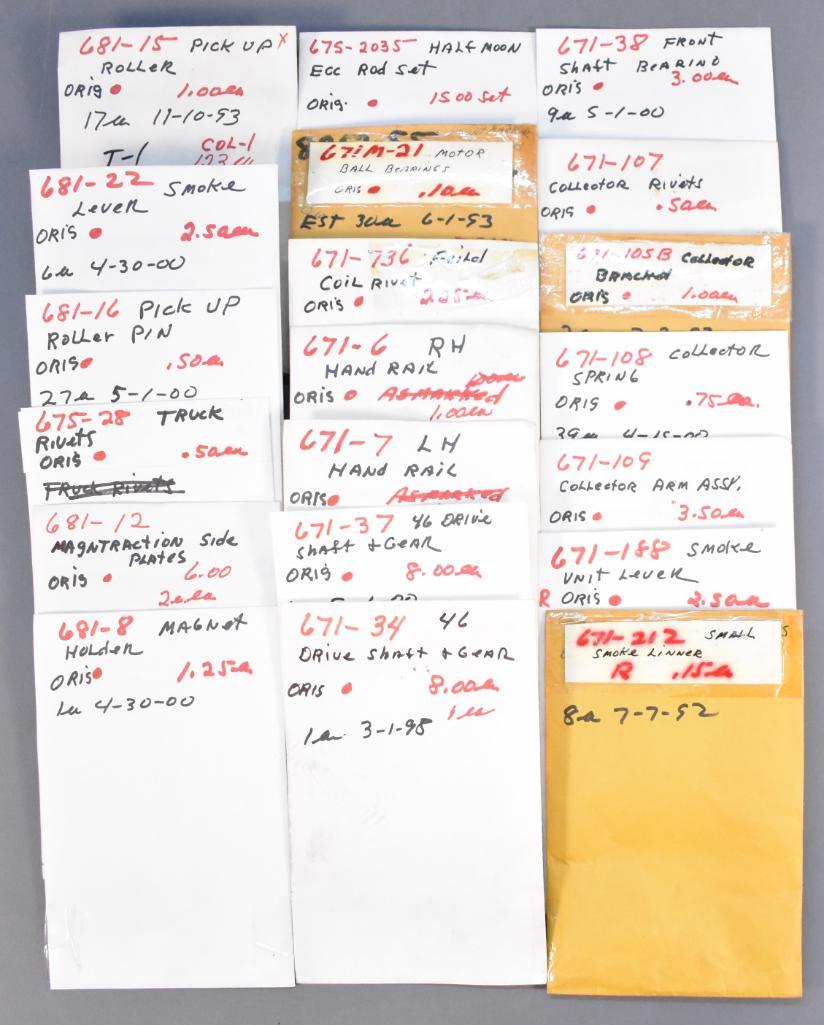 681-15 PICK UP X
ROLLER
ORIG 1.00ea
17ea 11-10-93
T-1 COL-1
681-22 SMOKE
LEVER
ORIG 2.50ea
6ea 4-30-00
681-16 PICK UP
ROLLER PIN
ORIG .50ea
27ea 5-1-00
675-28 TRUCK
RIVETS
ORIG .50ea
TRUCK RIVETS
681-12
MAGNTRACTION SIDE
PLATES
ORIG 6.00
2ea ea
681-8 MAGNET
HOLDER
ORIG 1.25ea
1ea 4-30-00
675-2035 HALF MOON
ECC ROD SET
ORIG. 15.00 set
671M-21 MOTOR
BALL BEARINGS
ORIG .10ea
EST 30ea 6-1-93
671-736 Feild
COIL RIVET
ORIG 2.25ea
671-6 RH
HAND RAIL
ORIG AS MARKED
1.00ea
671-7 LH
HAND RAIL
ORIG AS MARKED
671-37 46 DRIVE
SHAFT + GEAR
ORIG 8.00ea
671-34 46
DRIVE SHAFT + GEAR
ORIG 8.00ea
1ea
1ea 3-1-98
671-38 FRONT
SHAFT BEARING
ORIG 3.00ea
9ea 5-1-00
671-107
COLLECTOR RIVETS
ORIG .50ea
671-105B COLLECTOR
BRACKET
ORIG 1.00ea
671-108 COLLECTOR
SPRING
ORIG .75ea.
39ea 4-15-00
671-109
COLLECTOR ARM ASSY.
ORIG 3.50ea
671-188 SMOKE
UNIT LEVER
R ORIG 2.50ea
671-212 SMALL S
SMOKE LINNER
R .15ea
8ea 7-7-92